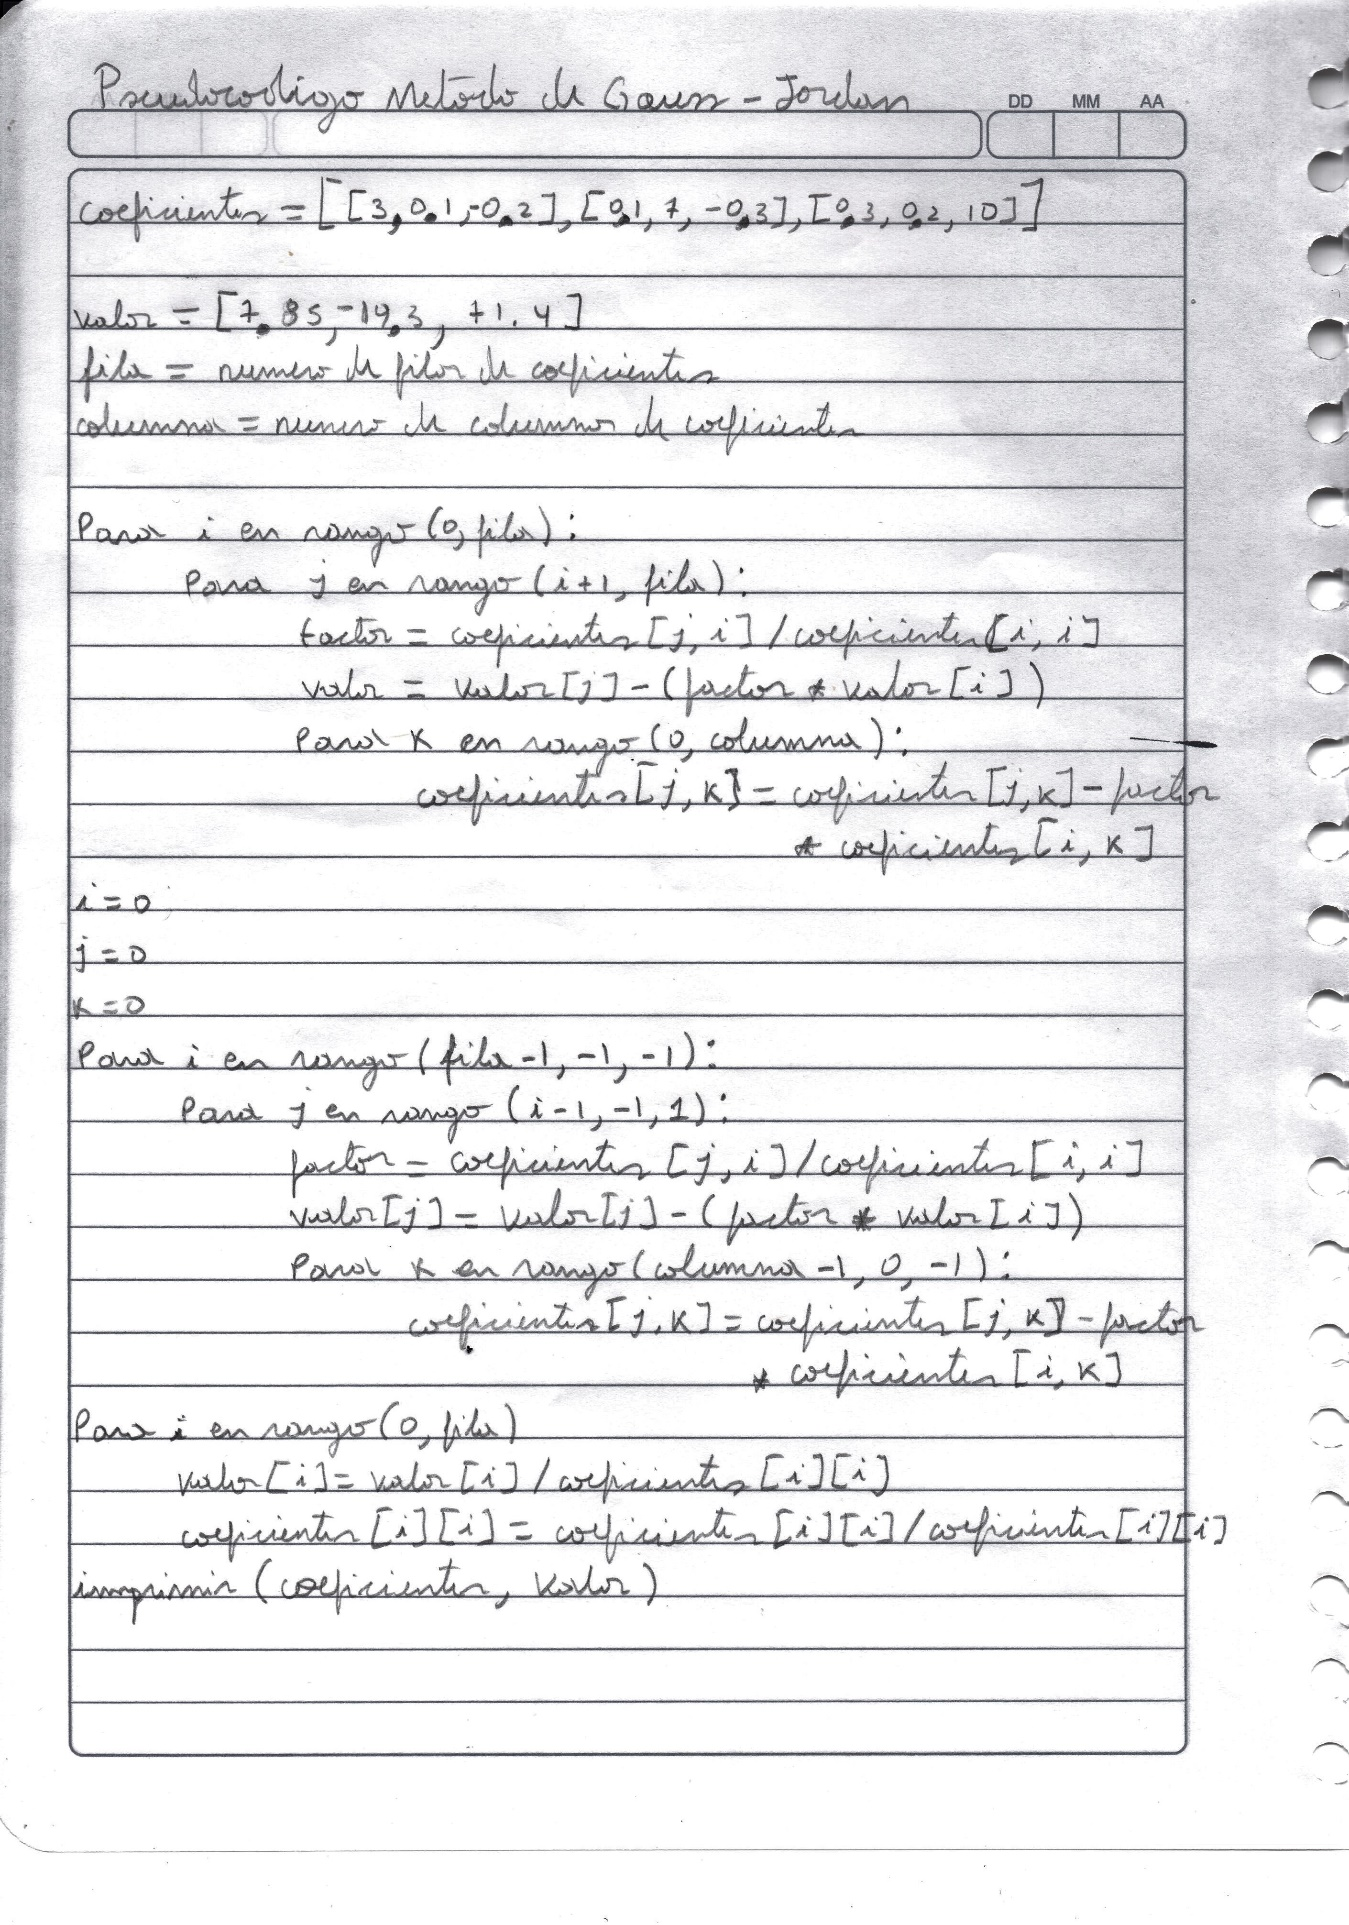 Pseudocodigo Metodo de Gauss-Jordan
DD MM AA
coeficientes = [[3,0.1,-0.2],[0.1,7,-0.3],[0.3,0.2,10]]
valor = [7.85,-19.3, 71.4]
fila = numero de filas de coeficientes
columna = numero de columnas de coeficientes
Para i en rango(0,fila):
Para j en rango(i+1, fila):
factor = coeficientes[j,i]/coeficientes[i,i]
valor = valor[j]-(factor * valor[i])
Para k en rango(0,columna):
coeficientes[j,k]=coeficientes[j,k]-factor
* coeficientes[i,k]
i=0
j=0
k=0
Para i en rango(fila-1,-1,-1):
Para j en rango(i-1,-1,1):
factor = coeficientes[j,i]/coeficientes[i,i]
valor[j]=valor[j]-(factor * valor[i])
Para k en rango(columna-1,0,-1):
coeficientes[j,k]=coeficientes[j,k]-factor
* coeficientes[i,k]
Para i en rango(0,fila)
valor[i]=valor[i]/coeficientes[i][i]
coeficientes[i][i]=coeficientes[i][i]/coeficientes[i][i]
imprimir(coeficientes, valor)